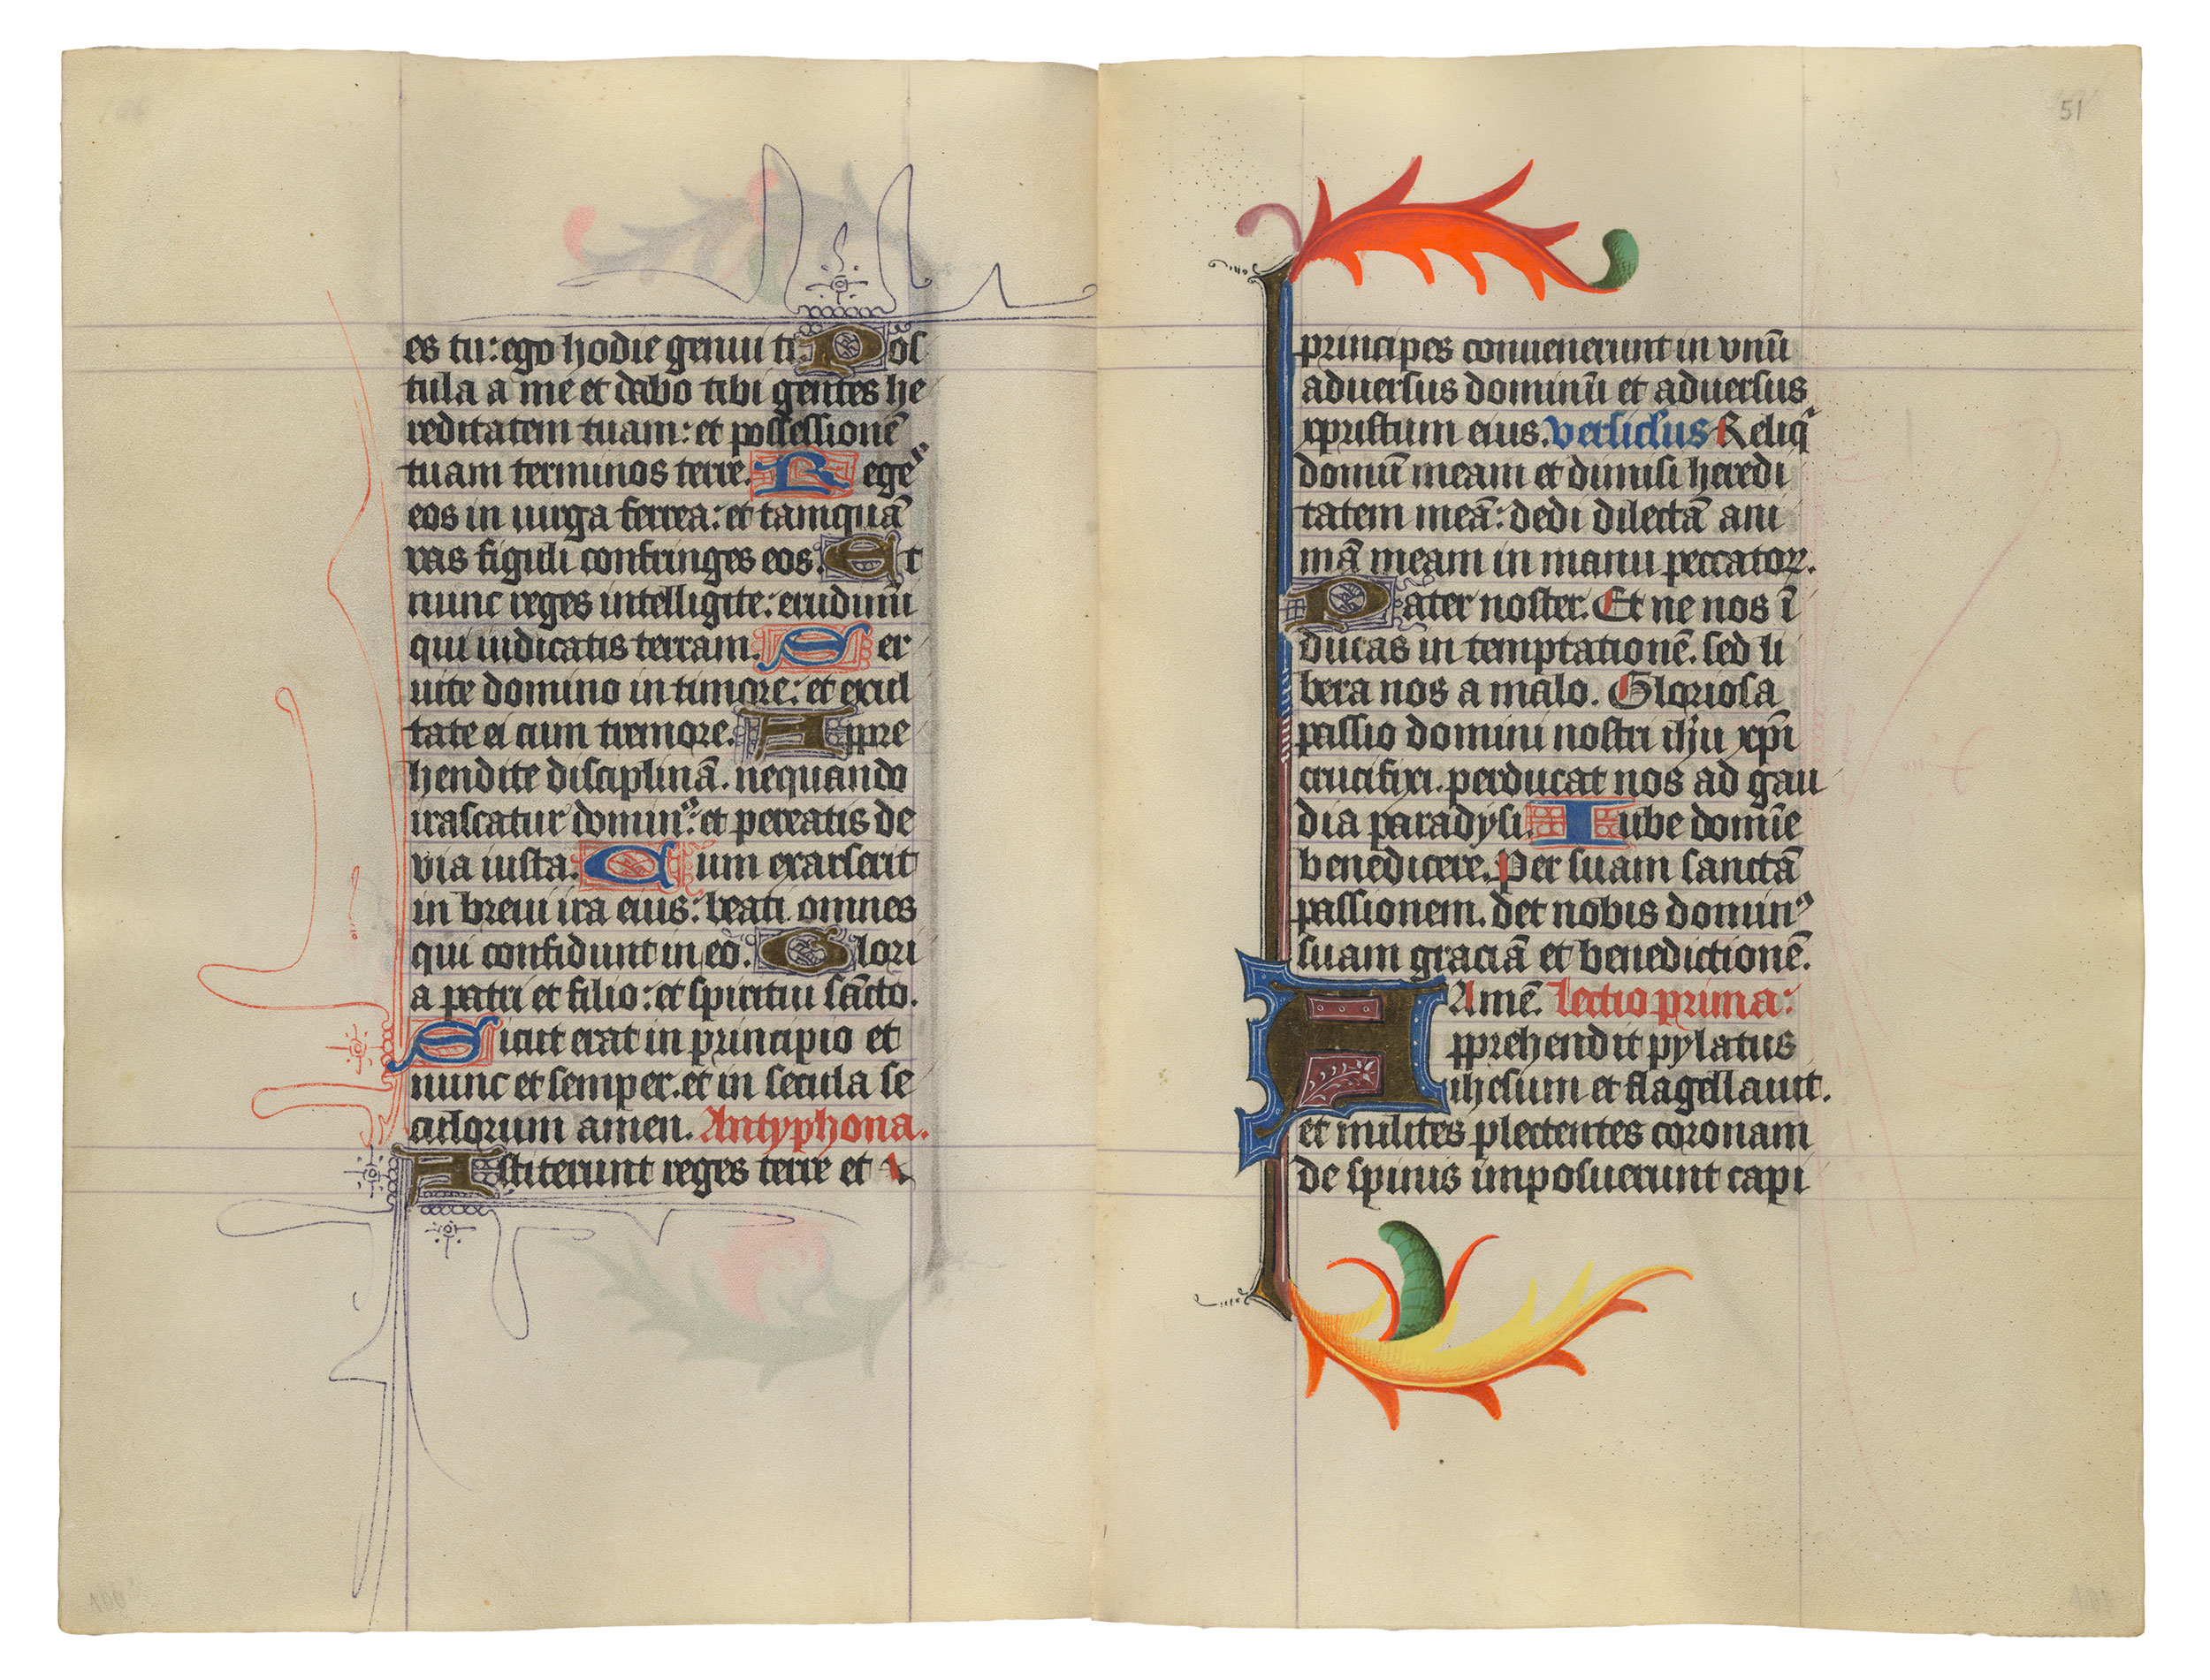 es tu: ego hodie genui te. Pos
tula a me et dabo tibi gentes he
reditatem tuam: et possessionē
tuam terminos terre. Reges
eos in uirga ferrea: et tamquā
vas figuli confringes eos. Et
nunc reges intelligite: erudimī
qui iudicatis terram. Ser
uite domino in timore: et exul
tate ei cum tremore. Appre
hendite disciplinā. nequando
irascatur dominꝰ: et pereatis de
via iusta. Cum exarserit
in breui ira eius: beati omnes
qui confidunt in eo. Glori
a patri et filio: et spiritui sāncto.
Sicut erat in principio et
nunc et semper. et in secula se
culorum amen. Antyphona.
Astiterunt reges terre et
51
principes conuenerunt in vnū
aduersus dominū et aduersus
xpristum eius. versiclus Reliq
domū meam et dimisi heredi
tatem meā: dedi dilectā ani
mā meam in manu peccatorꝝ.
Pater noster. Et ne nos ī
ducas in temptationē. sed li
bera nos a malo. Gloriosa
passio domini nostri ihū xpī
crucifixi. perducat nos ad gau
dia paradysi. Iube domīe
benedicere. Per suam sanctā
passionem. det nobis dominꝰ
suam graciā et benedictionē.
Amē. lectio prima:
Apprehendit pylatus
ihesum et flagellauit.
et milites plectentes coronam
de spinis imposuerunt capi